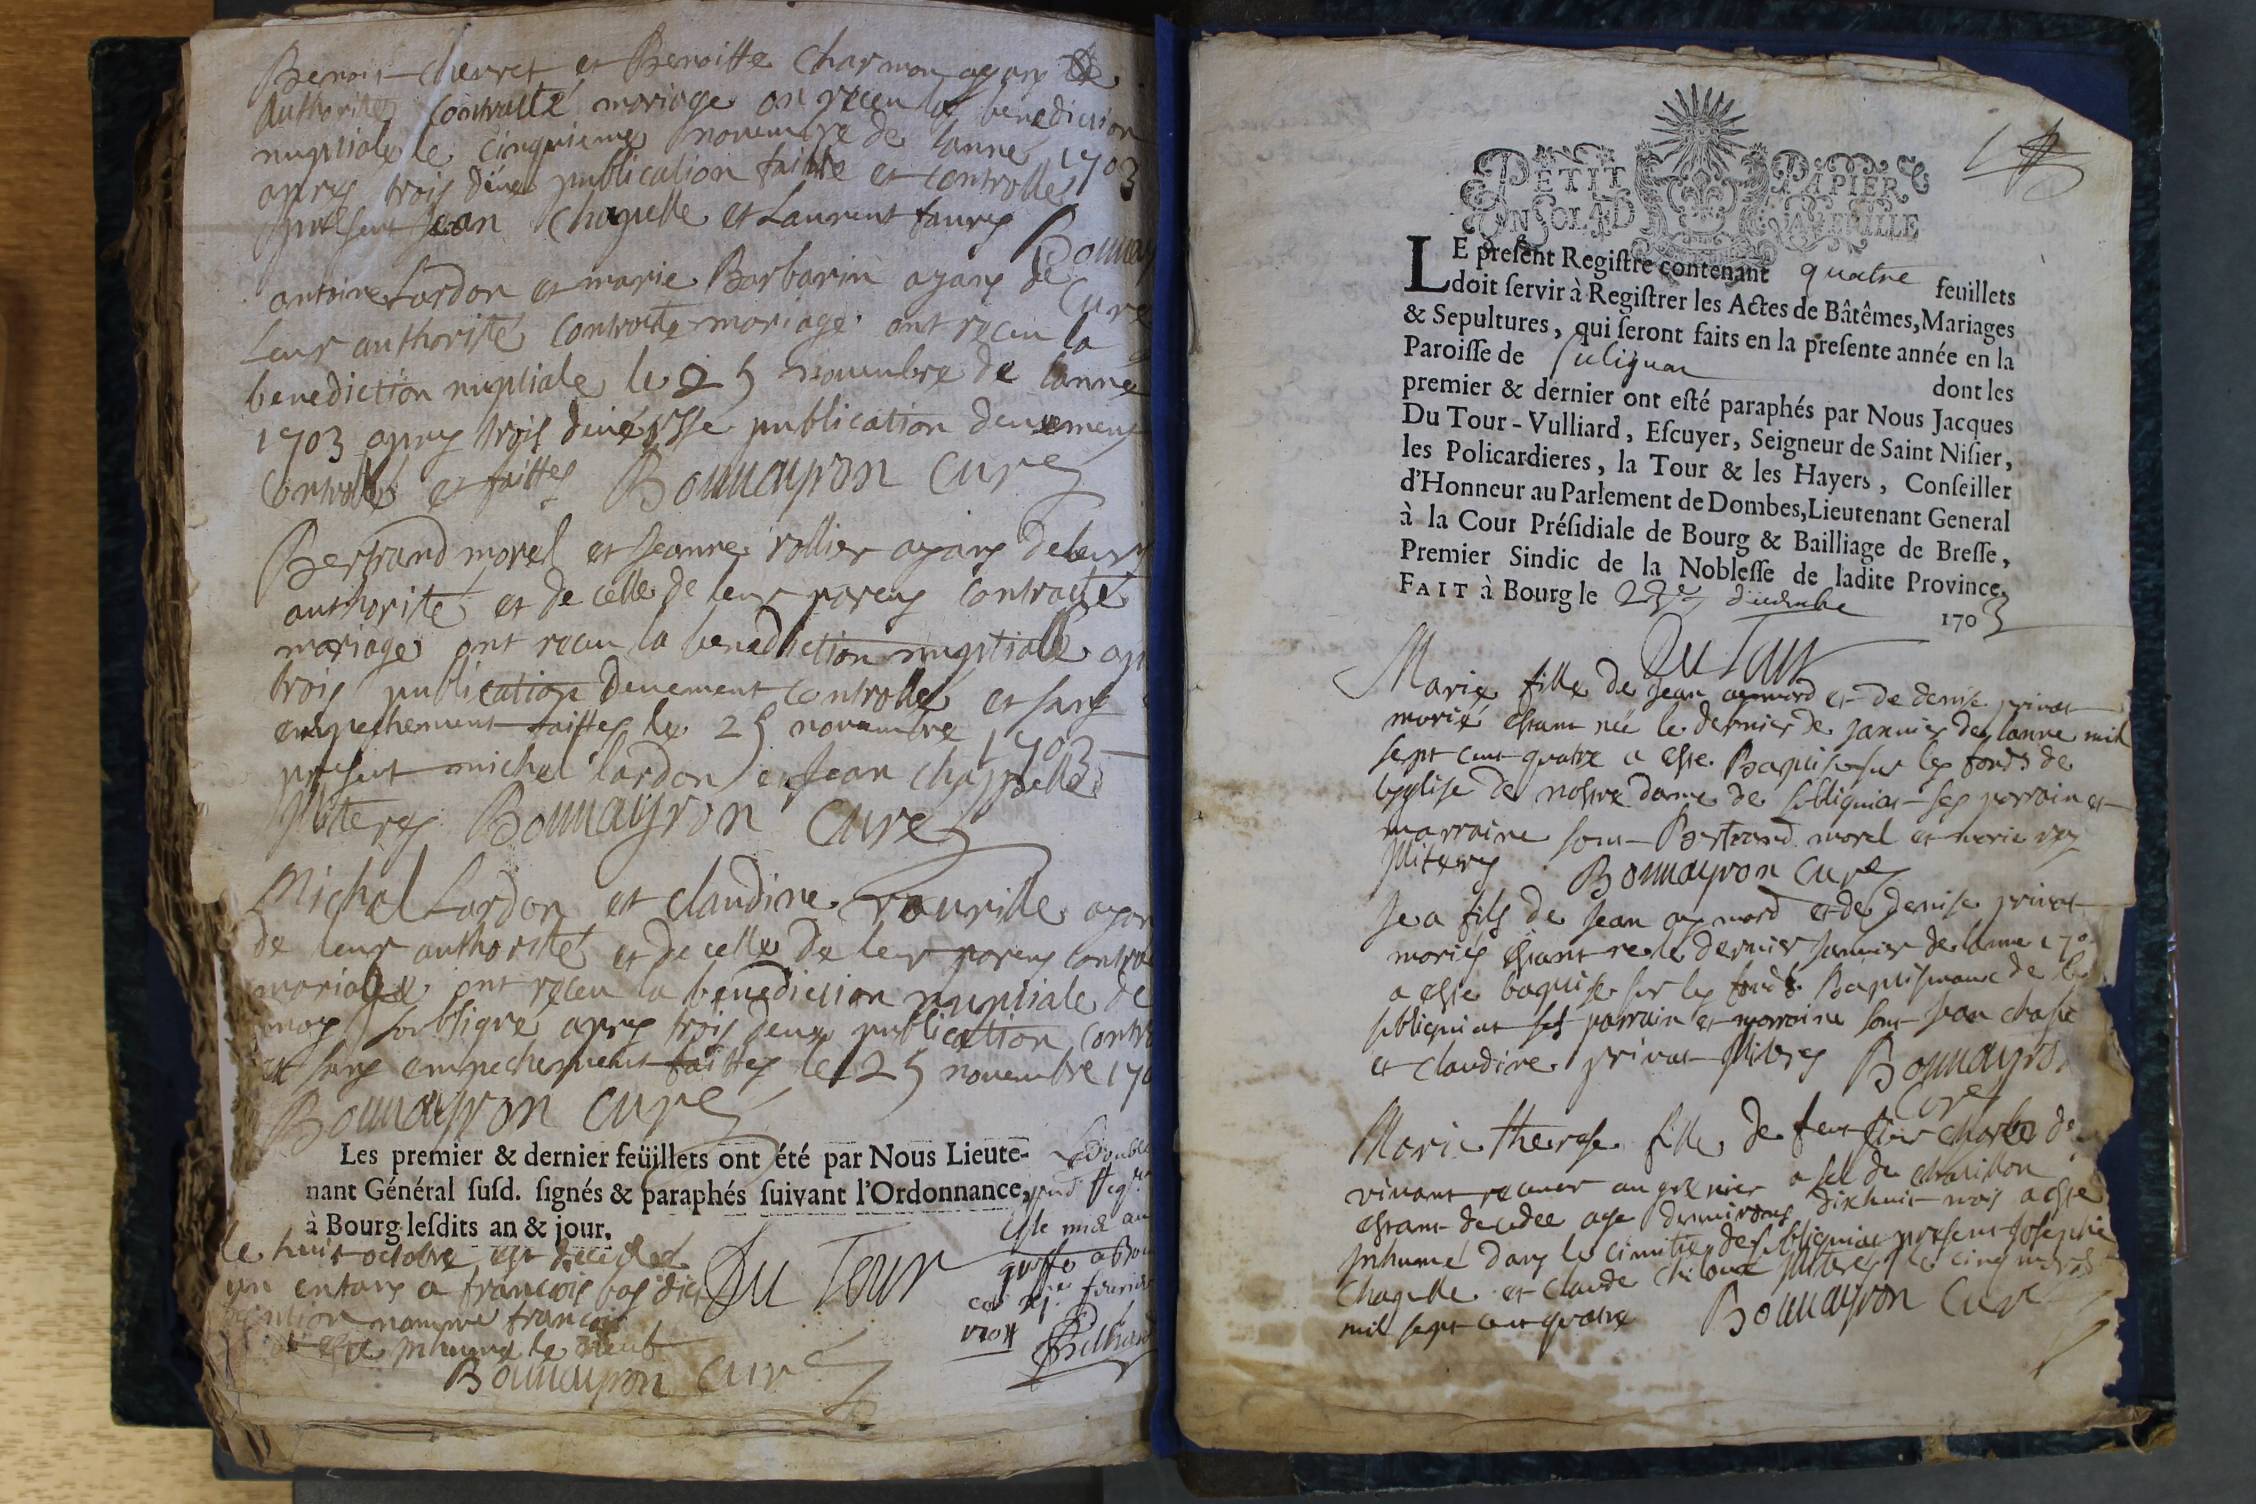 Benoit Chevret et Benoitte Charmon ayans de
authorité contracté mariage on receu la benediction
nuptiale le cinquieme novembre de lanné 1703
apres trois deues publication faitte et controlles
present Jean Chapelle et Laurent faures
Bonnay
Curé
antoine Lardon et marie Barbarin ayans de
Leur authorité contracte mariage ont receu la
benediction nuptiale le 25 novembre de lanné
1703 apres trois publication deuement
controlle et faittes Bonnayron Curé
Bertrand morel et Jeanne rollier ayans de leur
authorité et de celle de leur parens contracté
mariage ont receu la benediction nuptiale ap
trois publication deuement controllé et sans
empechement faittes le 25 novembre 1703
present michel lardon et Jean Chappelle
Illiteres Bonnayron Curé
Michel Lardon et claudine rourille ayan
de leur authorité et de celle de leur parens contra
mariage ont receu la benediction nuptiale de
moy soubsigné apres trois deues publication contro
et sans empechement faittes le 25 novembre 170
Bonnayron Curé
Les premier & dernier feüillets ont été par Nous Lieute-
nant Général ſuſd. ſignés & paraphés ſuivant l'Ordonnance,
à Bourg leſdits an & jour.
Du Tour
le huit octobre est decedé
un enfans a francois bas dict
nomme francois
inhumé le neuf
Bonnayron Curé
Le double
greffe a Bou
fevrier
1704
PETIT PAPIER
LE preſent Regiſtre contenant quatre feuillets
doit ſervir à Regiſtrer les Actes de Bâtêmes, Mariages
& Sepultures, qui ſeront faits en la preſente année en la
Paroiſſe de Sulignat dont les
premier & dernier ont eſté paraphés par Nous Jacques
Du Tour-Vulliard, Eſcuyer, Seigneur de Saint Niſier,
les Policardieres, la Tour & les Hayers, Conſeiller
d'Honneur au Parlement de Dombes, Lieutenant General
à la Cour Préſidiale de Bourg & Bailliage de Breſſe,
Premier Sindic de la Nobleſſe de ladite Province.
FAIT à Bourg le decembre 1703
Du Tour
Marie fille de Jean aymard et de denise privat
marié estant née le dernier de janvier de lanne mil
sept cent quatre a este Baptise sur les fonds de
leglise de nostre dame de subligniat ses parrain et
marraine sont Bertrand morel et marie rey
Illiteres Bonnayron Curé
Jea fils de Jean aymard et de denise privat
mariés estant ne le dernier Janvier de lanne 170
a este baptise sur les fonds Baptismaux de
subligniat ses parrain et marraine sont Jean chap
et claudine privat Illiteres Bonnayro
Cure
Marie therese fille de feu Sieur Charles de
vivant receveur au grenier a sel de chatillon
estant decedee agee denviron dixhuit mois a este
Inhumé dans le cimitiere de subligniat present Joseph
Chapelle et Claude Illiteres le cinq mars
mil sept cent quatre Bonnayron Curé